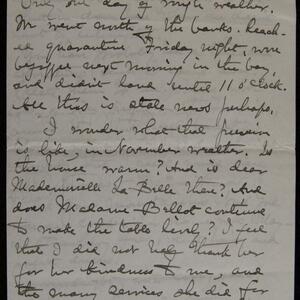 Only one day of rough weather.
We went north of the banks. Reach-
ed quarantine Friday night, were
befogged next morning in the bay,
and didn't land until 11 o'clock.
All this is stale news perhaps.
I wonder what that pension
is like, in November weather. Is
the house warm? And is dear
Mademoiselle La Belle there? And
does Madame Bellot continue
to make the table lively? I feel
that I did not half thank her
for her kindness to me, and
the many services she did for